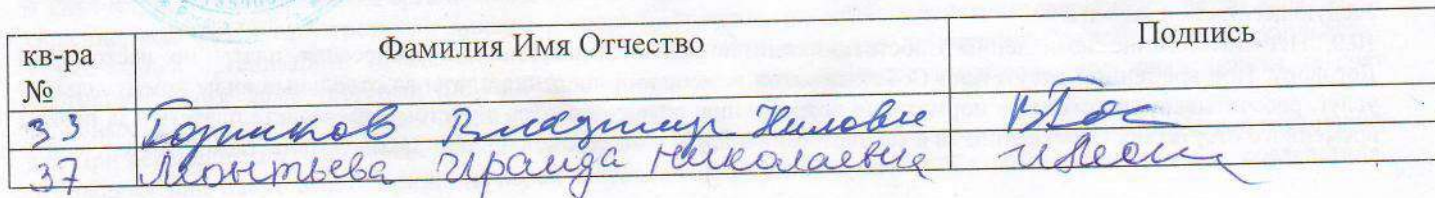 кв-ра № Фамилия Имя Отчество Подпись
33 Горшков Владимир Нилович
37 Леонтьева Ираида Николаевна